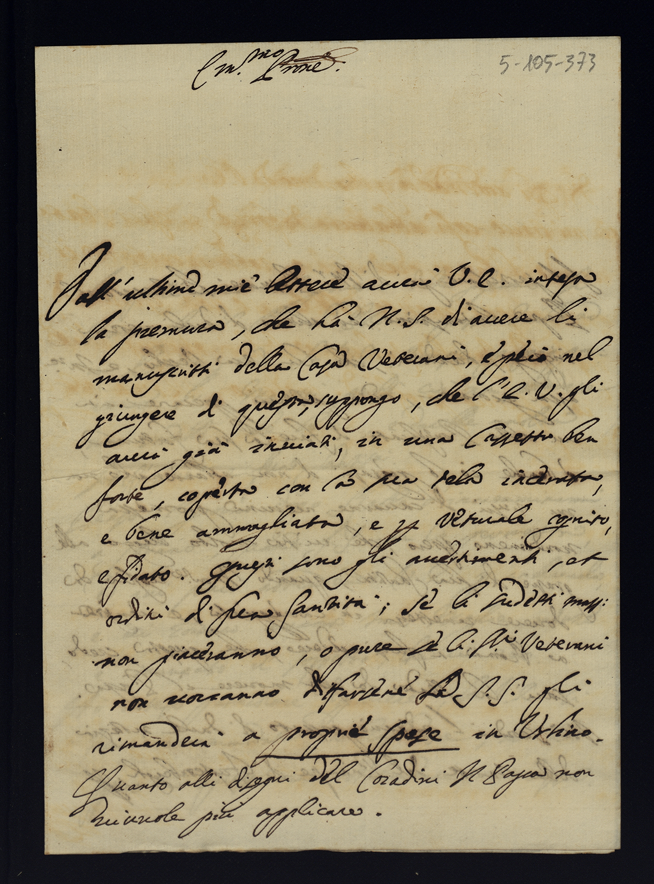 Em.mo Prone.
5-105-373
Dall' ultime mie lettere averà V. E. inteso
la premura, che hà N. S. di avere li
manuscritti della Casa Veterani, e però nel
giungere di questa, suppongo, che l'E. V. gli
averà già inviati, in una Cassetta ben
forte, coperta con la sua tela incerata,
e bene ammagliata, e per Veturale cognito,
e fidato. Questi sono gli avertimenti, et
ordini di sua Santità; se li sudetti mss:
non piaceranno, o pure se li SS.ri Veterani
non voranno disfarsene la S. S. gli
rimanderà a proprie spese in Urbino.
Quanto alli disegni del Coradini Il Papa non
ci vuole più applicare.